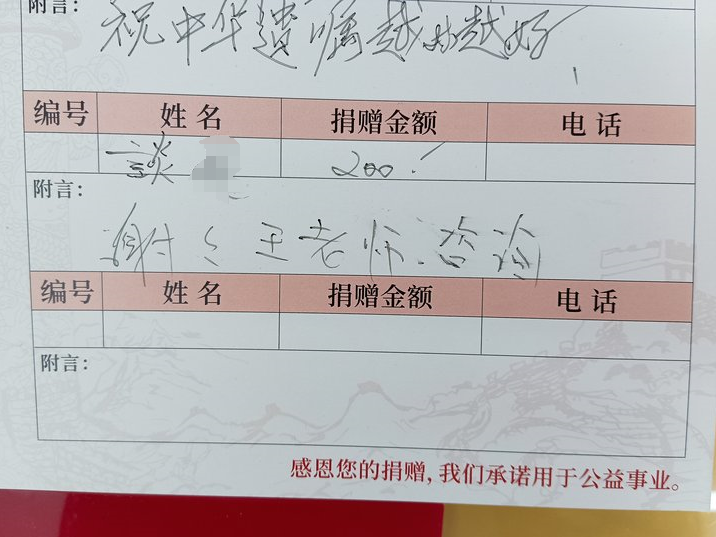 附言：
祝中华遗嘱越办越好
编号 姓名 捐赠金额 电话
談 200.
附言：
谢谢王老师咨询
编号 姓名 捐赠金额 电话
附言：
感恩您的捐赠，我们承诺用于公益事业。